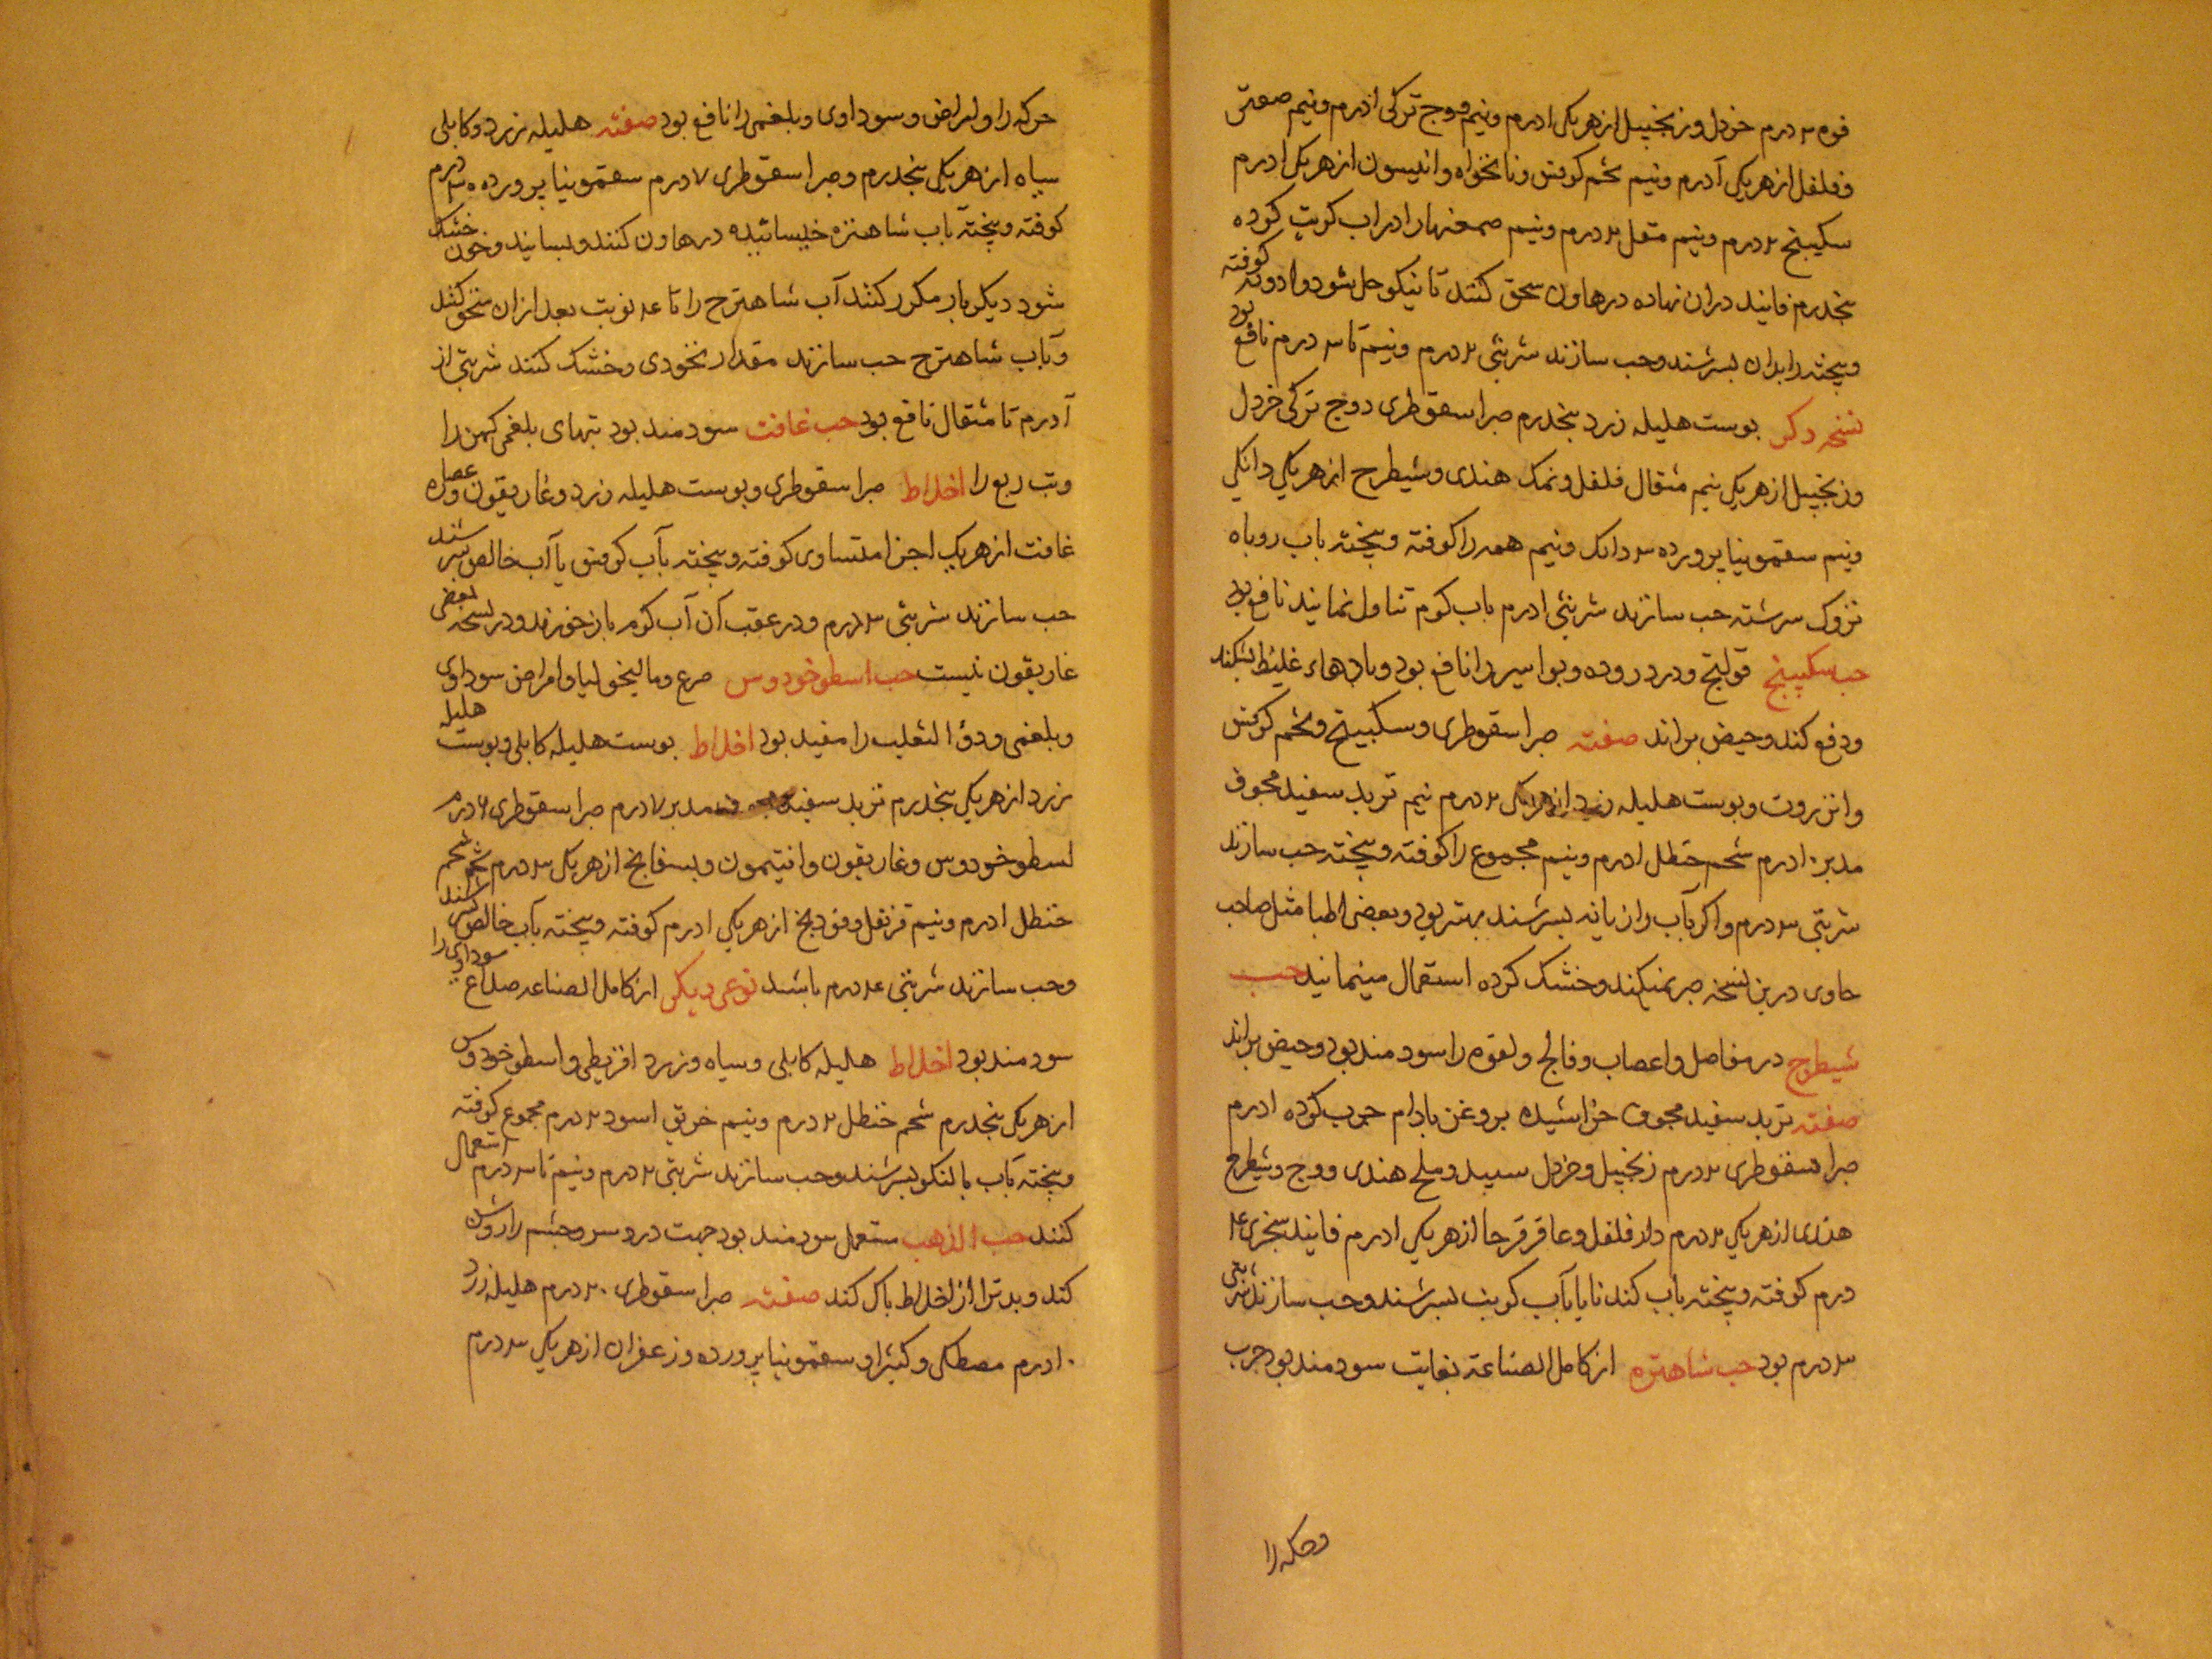 فوه ۳ درم خردل و زنجبیل از هر یکی ۱ درم و نیم ووج ترکی ۱ درم و نیم صعتر
و فلفل از هر یکی ۱ درم و نیم تخم کرفس و نانخواه و انیسون از هر یکی ۱ درم
سکبینج ۲ درم و نیم مقل ۲ درم و نیم صمغها را در آب کرده
پنجدرم فانید دران نهاده در هاون سحق کنند تا نیکو حل شود و ادویه کوفته
و بیخته را بدان بسرشند و حب سازند شربتی ۲ درم و نیم تا ۳ درم نافع بود
نسخه دکر بوست هلیله زرد پنجدرم صبر اسقوطری و وج ترکی خردل
و زنجبیل از هر یکی نیم مثقال فلفل و نمک هندی و شیطرج از هر یکی دانکی
و نیم سقمونیا پرورده ۳ دانک و نیم همه را کوفته و بیخته باب روباه
تزوک سرشته حب سازند شربتی ۱ درم باب کرم تناول نمایند نافع بود
حب سکبینج قولنج و درد روده و بواسیر را نافع بود و بادهاء غلیظ بشکند
و دفع کند و حیض براند صفته صبر اسقوطری و سکبینج و تخم کرفس
و انزروت و بوست هلیله زرد از هر یکی ۲ درم نیم تربد سفید مجوف
مدبر ۱۰ درم شحم حنظل ۱ درم و نیم مجموع را کوفته و بیخته حب سازند
شربتی ۳ درم و اکر بآب رازیانه بسرشند بهتر بود و بعضی اطبا مثل صاحب
حاوی درین نسخه صبر نمیکند و خشک کرده استعمال مینمایند حب
شیطرج درد مفاصل و اعصاب و فالج و لقوه را سودمند بود و حیض براند
صفته تربد سفید مجوف خراشیده بروغن بادام چرب کرده ۱۰ درم
صبر اسقوطری ۲ درم زنجبیل و خردل سپید و ملح هندی و وج و شیطرج
هندی از هر یکی ۲ درم دار فلفل و عاقرقرحا از هر یکی ۱ درم فانید سجزی ۴
درم کوفته و بیخته باب کندنا یا بآب کرنب بسرشند و حب سازند شربتی
۳ درم بود حب شاهتره از کامل الصناعة بغایت سودمند بود جرب
وحکه را
حرکه را و امراض و سوداوی و بلغمی را نافع بود صفته هلیله زرد و کابلی
سیاه از هر یکی پنجدرم و صبر اسقوطری ۷ درم سقمونیا پرورده ۳ درم
کوفته و بیخته باب شاهتره خیسانیده در هاون کنند و بسایند و چون خشک
شود دیکر بار مکرر کنند آب شاهترج را تا ۴ نوبت بعد ازان سحق کنند
و بآب شاهترج حب سازند مقدار نخودی و خشک کنند شربتی از
۱ درم تا مثقال نافع بود حب غافت سودمند بود تبهای بلغمی کهن را
و تب ربع را اخلاط صبر اسقوطری و بوست هلیله زرد و غاریقون و عصاره
غافت از هر یک اجزا متساوی کوفته و بیخته بآب کرفس یا آب خالص بسرشند
حب سازند شربتی ۳ درم و در عقب آن آب کرم باز خورند و در نسخه بعضی
غاریقون نیست حب اسطوخودوس صرع و مالیخولیا و امراض سوداوی
و بلغمی و دؤ الثعلب را مفید بود اخلاط بوست هلیله کابلی و بوست هلیله
زرد از هر یکی پنجدرم تربد سفید مجوف مدبر ۷ درم صبر اسقوطری ۶ درم
اسطوخودوس و غاریقون و افتیمون و بسفایج از هر یکی ۳ درم شحم
حنظل ۱ درم و نیم قرنفل و فودنج از هر یکی ۱ درم کوفته و بیخته بآب خالص بسرشند
و حب سازند شربتی ۴ درم باشد نوعی دیکر از کامل الصناعه صداع سوداوی را
سودمند بود اخلاط هلیله کابلی و سیاه و زرد اقریطی و اسطوخودوس
از هر یکی پنجدرم شحم حنظل ۲ درم و نیم خربق اسود ۲ درم مجموع کوفته
و بیخته بآب بالنکو بسرشند و حب سازند شربتی ۲ درم و نیم تا ۳ درم استعمال
کنند حب الذهب مستعمل سودمند بود جهت درد سر و چشم را روشن
کند و بدترا از اخلاط پاک کند صفته صبر اسقوطری ۲۰ درم هلیله زرد
۱۰ درم مصطکی و کتیرا و سقمونیا پرورده و زعفران از هر یکی ۳ درم